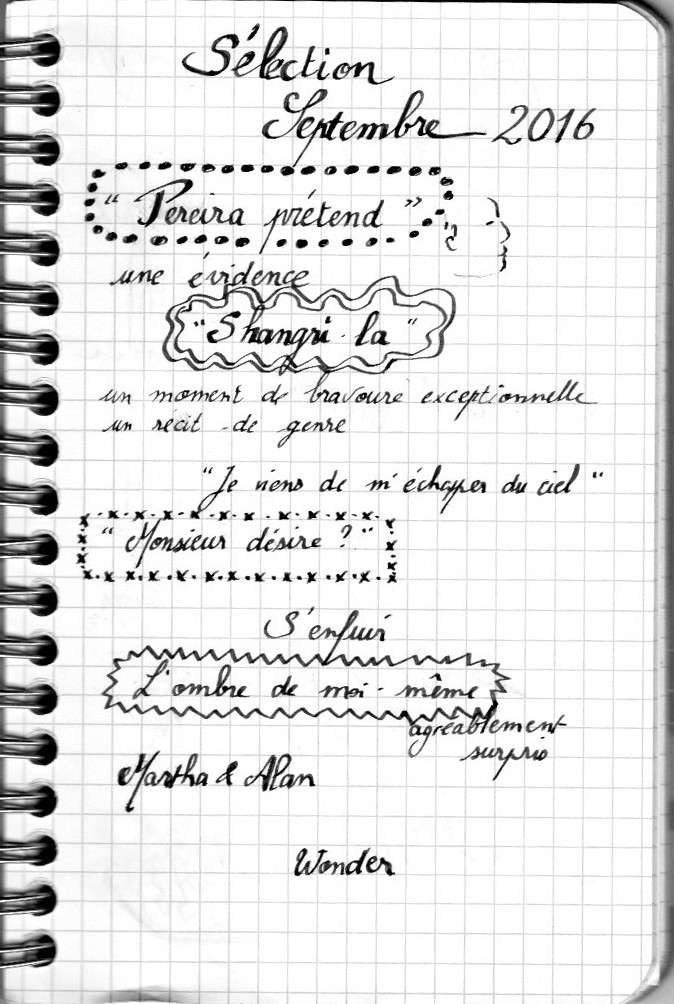 Sélection
Septembre 2016
"Pereira prétend"
une évidence
"Shangri-la"
un moment de bravoure exceptionnelle
un récit de genre
"Je viens de m'échapper du ciel"
"Monsieur désire ?"
S'enfuir
L'ombre de moi-même
agréablement
surpris
Martha & Alan
Wonder